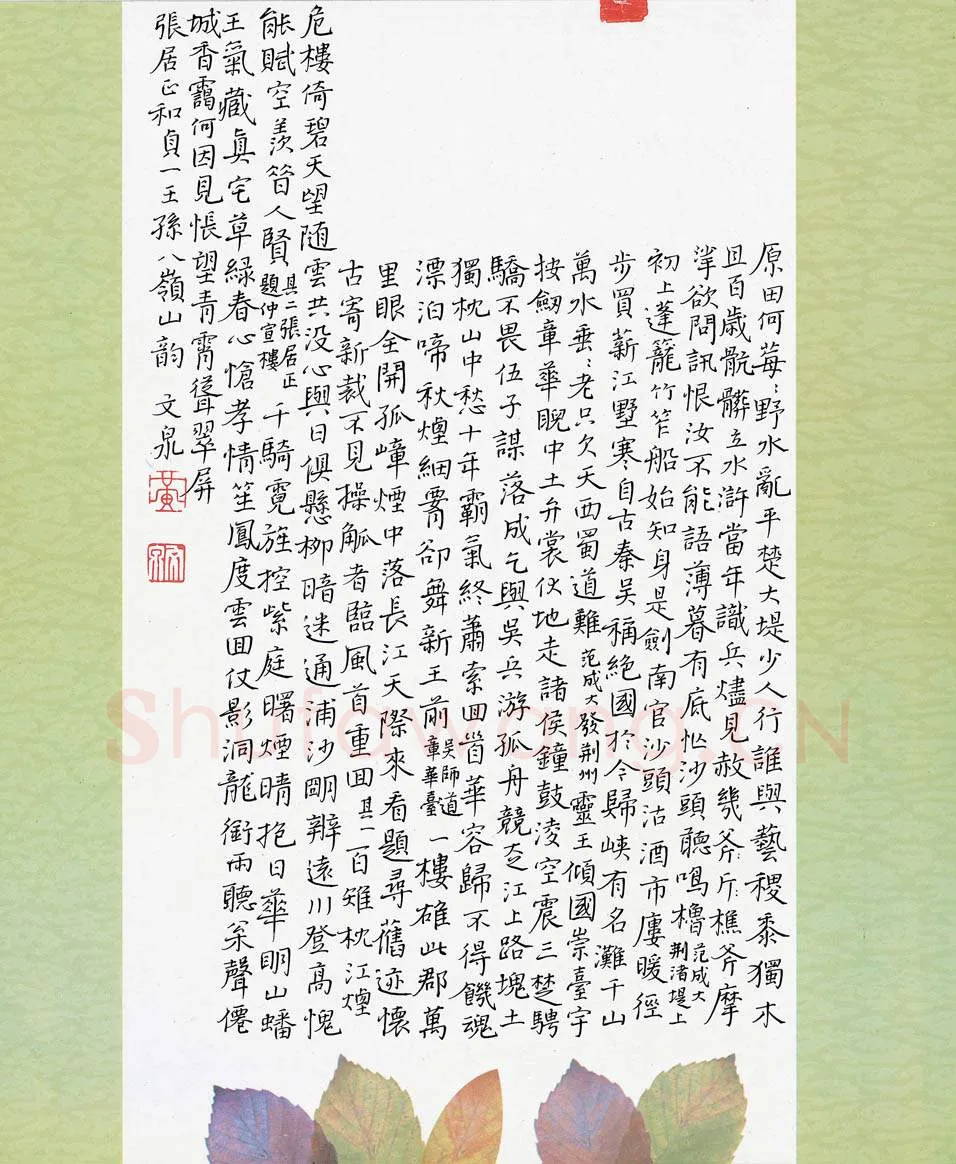 原田何莓〻野水亂平楚大堤少人行誰與藝稷黍獨木
且百歲骯髒立水滸當年識兵燼見赦幾斧斤樵斧摩
挲欲問訊恨汝不能語薄暮有底忙沙頭聽鳴櫓范成大荆渚堤上
初上蓬籠竹笮船始知身是劍南官沙頭沽酒市廔暖徑
步買薪江墅寒自古秦吳稱絕國於今歸峽有名灘千山
萬水垂〻老只欠天西蜀道難范成大發荆州靈王傾國崇臺宇
按劒章華睨中土弁裳伙地走諸侯鐘鼓淩空震三楚騁
驕不畏伍子謀落成乞與吳兵游孤舟競走江上路塊土
獨枕山中愁十年霸氣終蕭索回首華容歸不得饑魂
漂泊啼秋煙細霄卻舞新王前吳師道章華臺一樓雄此郡萬
里眼全開孤嶂煙中落長江天際來看題尋舊迹懷
古寄新裁不見操觚者臨風首重回其一百雉枕江煙
危樓倚碧天望随雲共没心與日俱懸柳暗迷通浦沙明辨遠川登高愧
能賦空羨昔人賢其二張居正題仲宣樓千騎霓旌控紫庭曙煙晴抱日華明山蟠
王氣藏真宅草綠春心愴孝情笙鳳度雲回仗影洞龍銜雨聽泉聲僊
城香靄何因見悵望青霄聳翠屏
張居正和貞一王孫八嶺山韵 文泉
Shufawang.CN